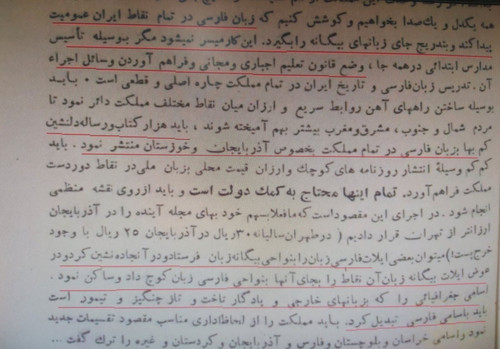 همه یکدل و یك صدا بخواهیم و کوشش کنیم که زبان فارسی در تمام نقاط ایران عمومیت
پیدا کند و بتدریج جای زبانهای بیگانه را بگیرد. این کار میسر نمیشود مگر بوسیله تأسیس
مدارس ابتدائی در همه جا، وضع قانون تعلیم اجباری و مجانی و فراهم آوردن وسائل اجراء
آن. تدریس زبان فارسی و تاریخ ایران در تمام مملکت چاره اصلی و قطعی است. بایـد
بوسیله ساختن راههای آهن روابط سریع و ارزان میان نقاط مختلف مملکت دائر نمود تا
مردم شمال و جنوب، مشرق و مغرب بیشتر بهم آمیخته شوند، باید هزار کتاب و رساله دلنشین
کم بها بزبان فارسی در تمام مملکت بخصوص آذربایجان و خوزستان منتشر نمود. باید
کم کم وسیلهٔ انتشار روزنامه های کوچك و ارزان قیمت محلی بزبان ملی در نقاط دوردست
مملکت فراهم آورد. تمام اینها محتاج به کمك دولت است و باید از روی نقشه منظمی
انجام شود. در اجرای این مقصود است که ما فعلا بسهم خود بهای مجله آینده را در آذربایجان
ارزانتر از تهران قرار دادیم (در طهران سالیانه ۳۰ ریال در آذربایجان ۲۵ ریال با وجود
خرج پست!) میتوان بعضی ایلات فارسی زبان را بنواحی بیگانه زبان فرستاد و در آنجا ده نشین کرد و در
عوض ایلات بیگانه زبان آن نقاط را بجای آنها بنواحی فارسی زبان کوچ داد و ساکن نمود.
اسامی جغرافیائی را که بزبانهای خارجی و یادگار تاخت و تاز چنگیز و تیمور است
باید باسامی فارسی تبدیل کرد. بـاید مملکت را از لحاظ اداری مناسب مقصود تقسیمات جدید
نمود و اسامی خراسان و بلوچستان و فارس و آذربایجان و کردستان و غیره را ترك گفت ...